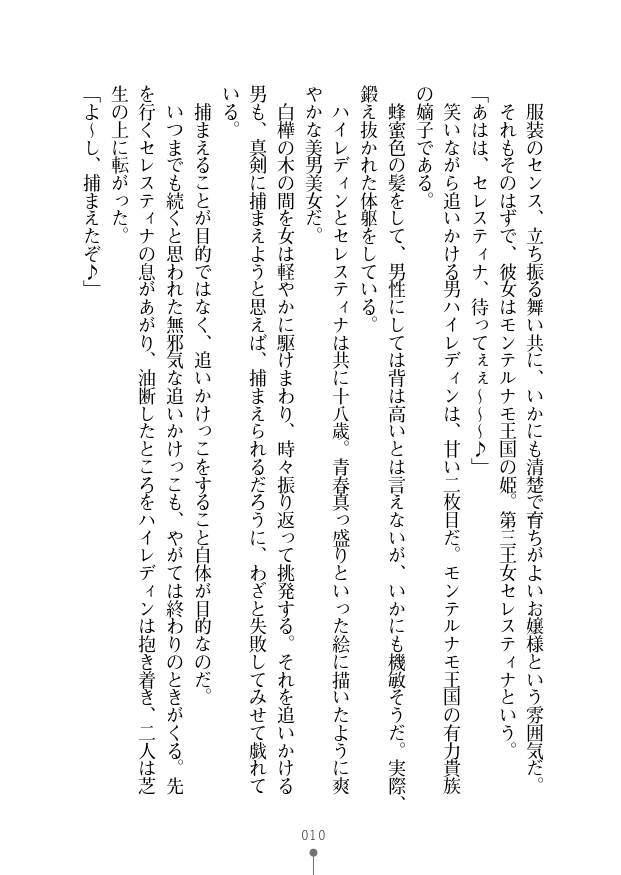 服装のセンス、立ち振る舞い共に、いかにも清楚で育ちがよいお嬢様という雰囲気だ。
それもそのはずで、彼女はモンテルナモ王国の姫。第三王女セレスティナという。
「あはは、セレスティナ、待ってぇぇ～～～♪」
笑いながら追いかける男ハイレディンは、甘い二枚目だ。モンテルナモ王国の有力貴族
の嫡子である。
蜂蜜色の髪をして、男性にしては背は高いとは言えないが、いかにも機敏そうだ。実際、
鍛え抜かれた体躯をしている。
ハイレディンとセレスティナは共に十八歳。青春真っ盛りといった絵に描いたように爽
やかな美男美女だ。
白樺の木の間を女は軽やかに駆けまわり、時々振り返って挑発する。それを追いかける
男も、真剣に捕まえようと思えば、捕まえられるだろうに、わざと失敗してみせて戯れて
いる。
捕まえることが目的ではなく、追いかけっこをすること自体が目的なのだ。
いつまでも続くと思われた無邪気な追いかけっこも、やがては終わりのときがくる。先
を行くセレスティナの息があがり、油断したところをハイレディンは抱き着き、二人は芝
生の上に転がった。
「よ～し、捕まえたぞ♪」
010